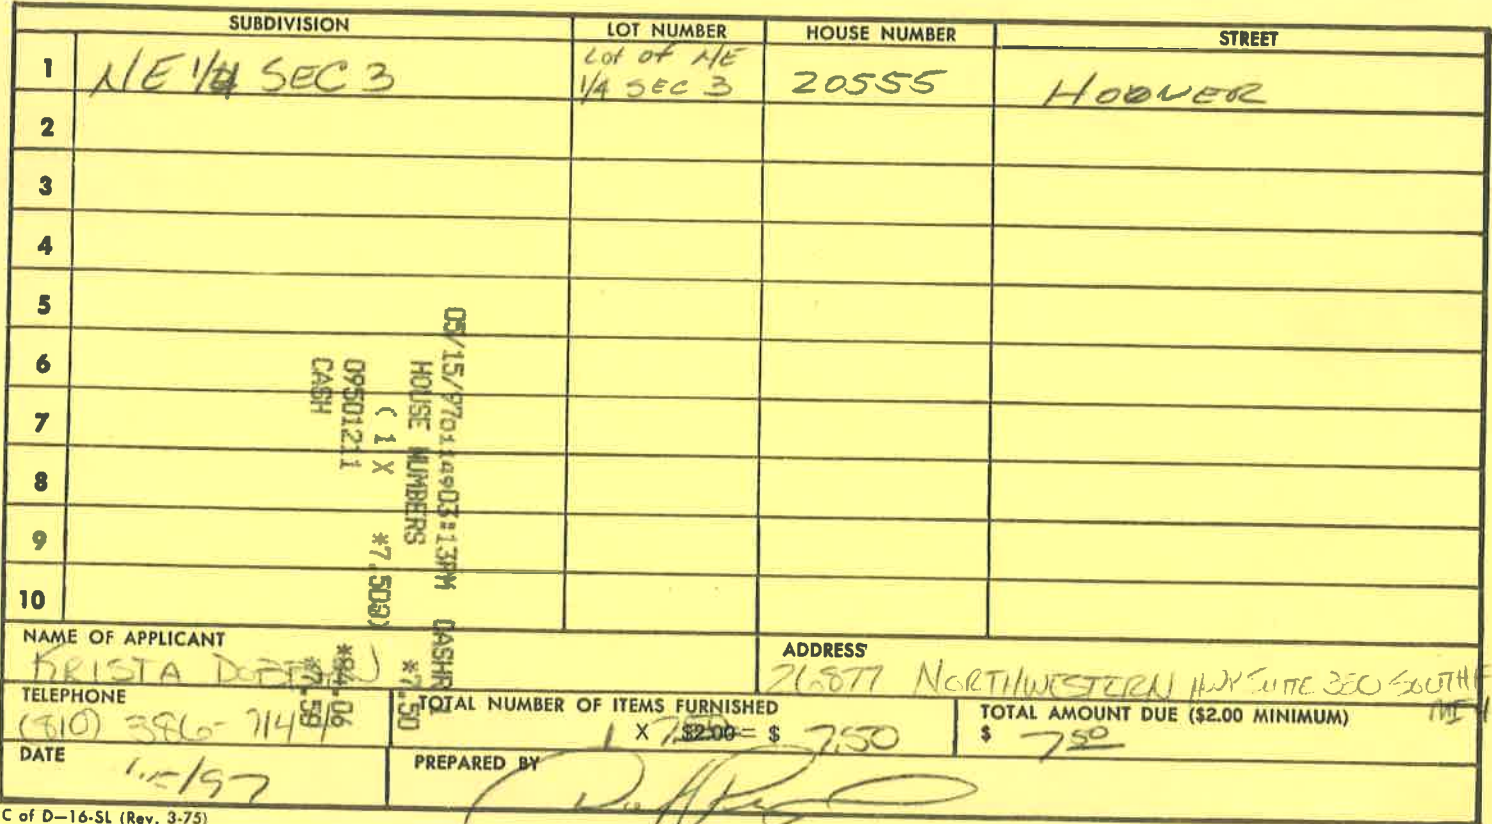 SUBDIVISION LOT NUMBER HOUSE NUMBER STREET
1 NE 1/4 SEC 3 Lot of NE 1/4 SEC 3 20555 HOOVER
2
3
4
5
6
7
8
9
10
05/15/97 03:13PM CASHR
HOUSE NUMBERS *7.50
( 1 X *7.50@)
09501211
CASH *7.50
NAME OF APPLICANT ADDRESS
KRISTA 26877 NORTHWESTERN HWY SUITE 350 SOUTHF
MI
TELEPHONE TOTAL NUMBER OF ITEMS FURNISHED TOTAL AMOUNT DUE ($2.00 MINIMUM)
(810) 1 X 7.50 $2.00 = $ 7.50 $ 7.50
DATE PREPARED BY
/97
C of D—16-SL (Rev. 3-75)